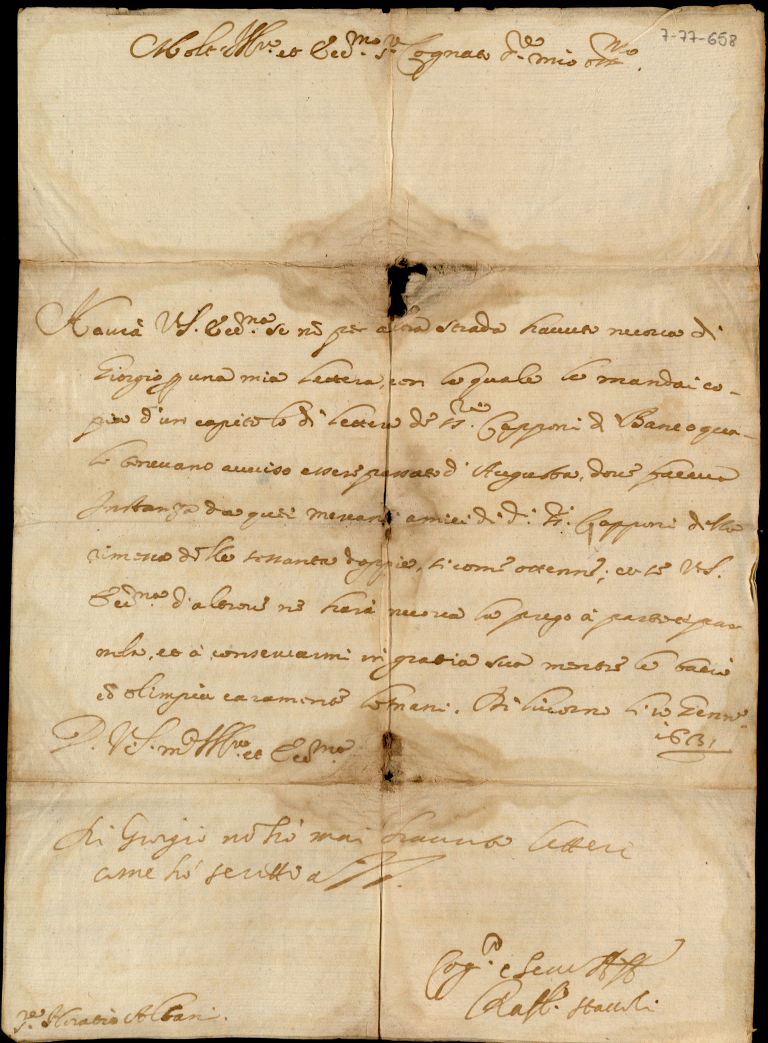 7-77-658
Molt' Ill.re et Ecc.mo S.r Cognato S.re mio oss.mo
Haverà V.S. Ecc.ma se nõ per altra strada havuto nuova di
Giorgio p una mia lettera, con la quale le mandai co-
pia d'un capitolo di lettera de SS.ri Capponi di qua-
le tenevano avviso essere passato d'Augusta, dove faceva
Instanza da quei mercanti amici di d.i SS.ri Capponi della
rimessa delle sessanta doppie, si come ottenne; et se V.S.
Ecc.ma d'altrove ne harà nuova la prego à partecipar
mela, et à conservarmi in gratia sua mentre le bacio
cõ Olimpia caramente le mani. Di Livorno li 10 Genn.o
1631
D. V.S. m.to Ill.re et Ecc.ma
Di Giorgio nõ ho mai havuto lettere
come hò scritto a
Cog.to e Ser.re Aff.
Raff.
S.r Horatio Albani.